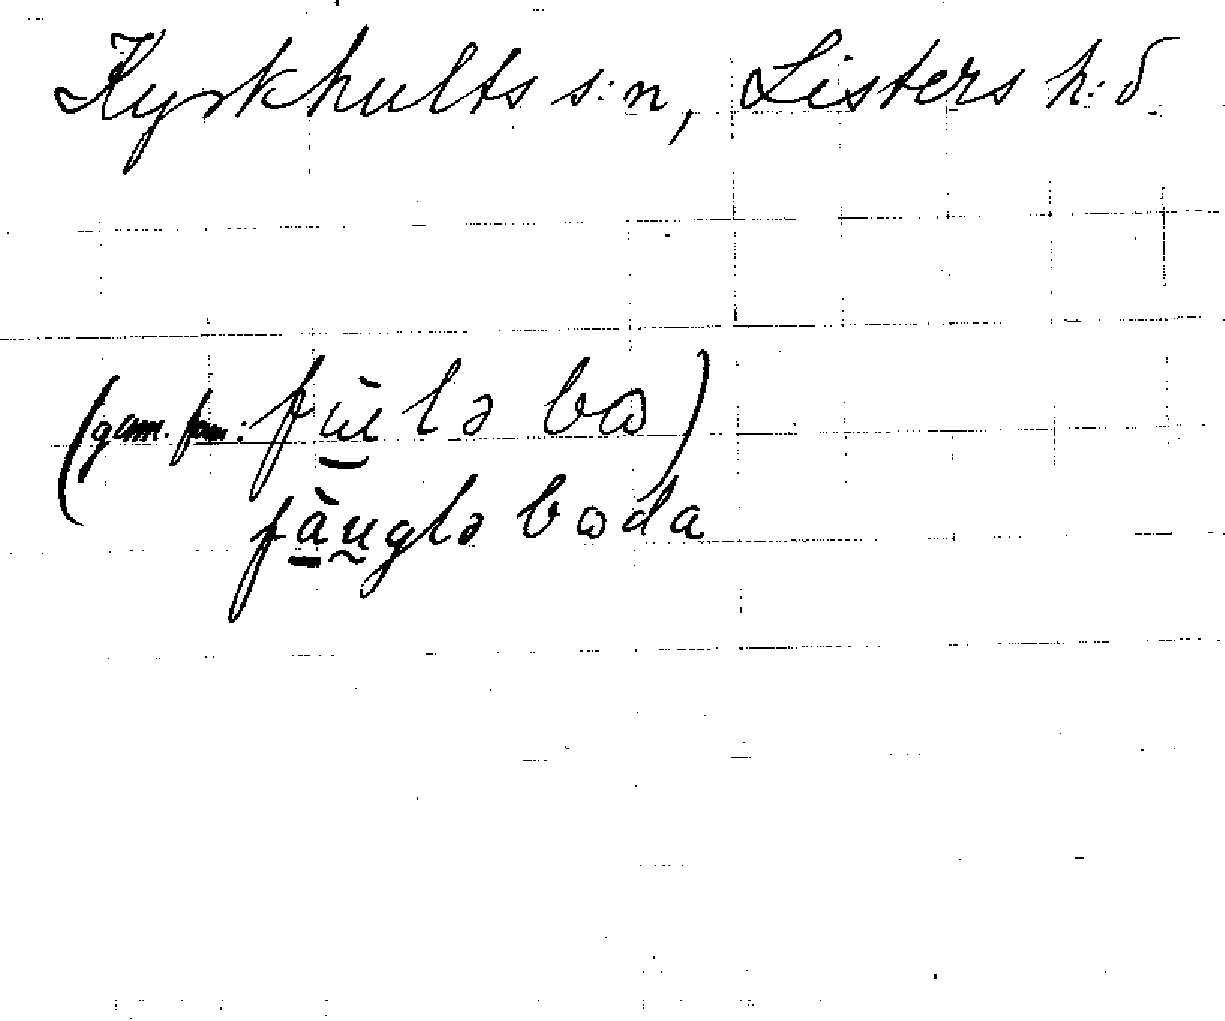 Kyrkhults s:n, Listers h:d.
(gam. fm: fu̱̇̀lə bɷ)
fà̱ṵglə bɷda